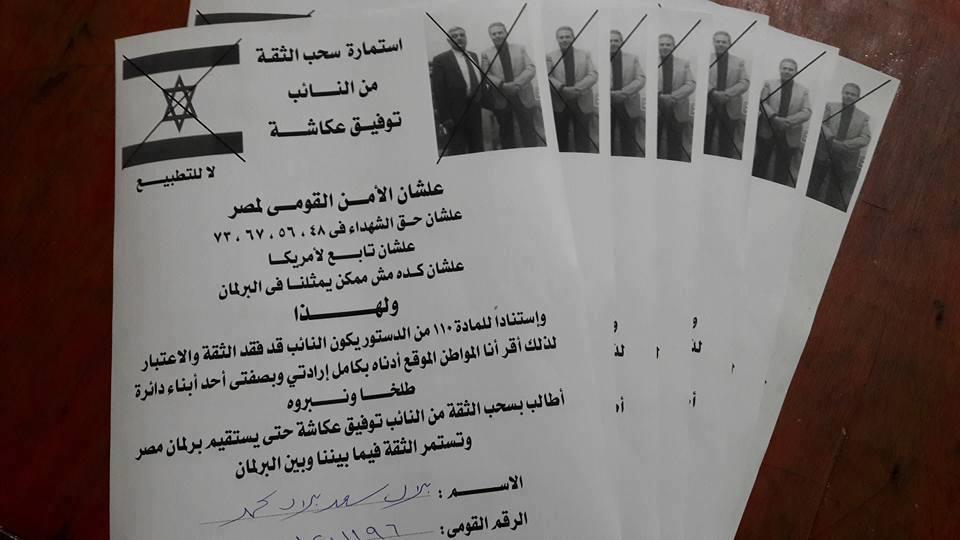 استمارة سحب الثقة
من النائب
توفيق عكاشة
لا للتطبيع
علشان الأمن القومى لمصر
علشان حق الشهداء فى ٤٨ ، ٥٦ ، ٦٧ ، ٧٣
علشان تابع لأمريكا
علشان كده مش ممكن يمثلنا فى البرلمان
ولهذا
وإستناداً للمادة ١١٠ من الدستور يكون النائب قد فقد الثقة والاعتبار
لذلك أقر أنا المواطن الموقع أدناه بكامل إرادتي وبصفتى أحد أبناء دائرة
طلخا ونبروه
أطالب بسحب الثقة من النائب توفيق عكاشة حتى يستقيم برلمان مصر
وتستمر الثقة فيما بيننا وبين البرلمان
الاسم : بلال سعد بلال محمد
الرقم القومى :